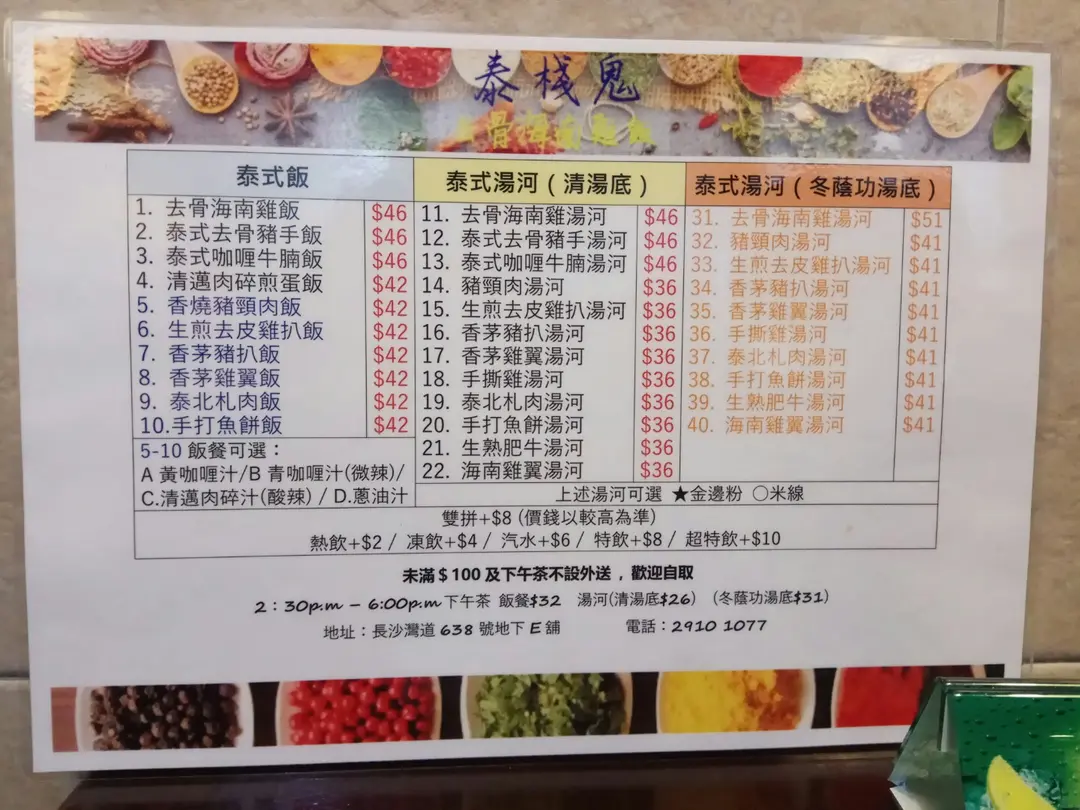 泰棧鬼
泰式飯
1. 去骨海南雞飯 $46
2. 泰式去骨豬手飯 $46
3. 泰式咖喱牛腩飯 $46
4. 清邁肉碎煎蛋飯 $42
5. 香燒豬頸肉飯 $42
6. 生煎去皮雞扒飯 $42
7. 香茅豬扒飯 $42
8. 香茅雞翼飯 $42
9. 泰北札肉飯 $42
10.手打魚餅飯 $42
5-10 飯餐可選：
A 黃咖喱汁/B 青咖喱汁(微辣)/
C.清邁肉碎汁(酸辣) / D.蔥油汁
泰式湯河（清湯底）
11. 去骨海南雞湯河 $46
12. 泰式去骨豬手湯河 $46
13. 泰式咖喱牛腩湯河 $46
14. 豬頸肉湯河 $36
15. 生煎去皮雞扒湯河 $36
16. 香茅豬扒湯河 $36
17. 香茅雞翼湯河 $36
18. 手撕雞湯河 $36
19. 泰北札肉湯河 $36
20. 手打魚餅湯河 $36
21. 生熟肥牛湯河 $36
22. 海南雞翼湯河 $36
泰式湯河（冬蔭功湯底）
31. 去骨海南雞湯河 $51
32. 豬頸肉湯河 $41
33. 生煎去皮雞扒湯河 $41
34. 香茅豬扒湯河 $41
35. 香茅雞翼湯河 $41
36. 手撕雞湯河 $41
37. 泰北札肉湯河 $41
38. 手打魚餅湯河 $41
39. 生熟肥牛湯河 $41
40. 海南雞翼湯河 $41
上述湯河可選 ★金邊粉 ○米線
雙拼+$8 (價錢以較高為準)
熱飲+$2 / 凍飲+$4 / 汽水+$6 / 特飲+$8 / 超特飲+$10
未滿＄100 及下午茶不設外送，歡迎自取
2：30p.m – 6:00p.m 下午茶 飯餐$32 湯河(清湯底$26) (冬蔭功湯底$31)
地址：長沙灣道 638 號地下 E 舖 電話：2910 1077